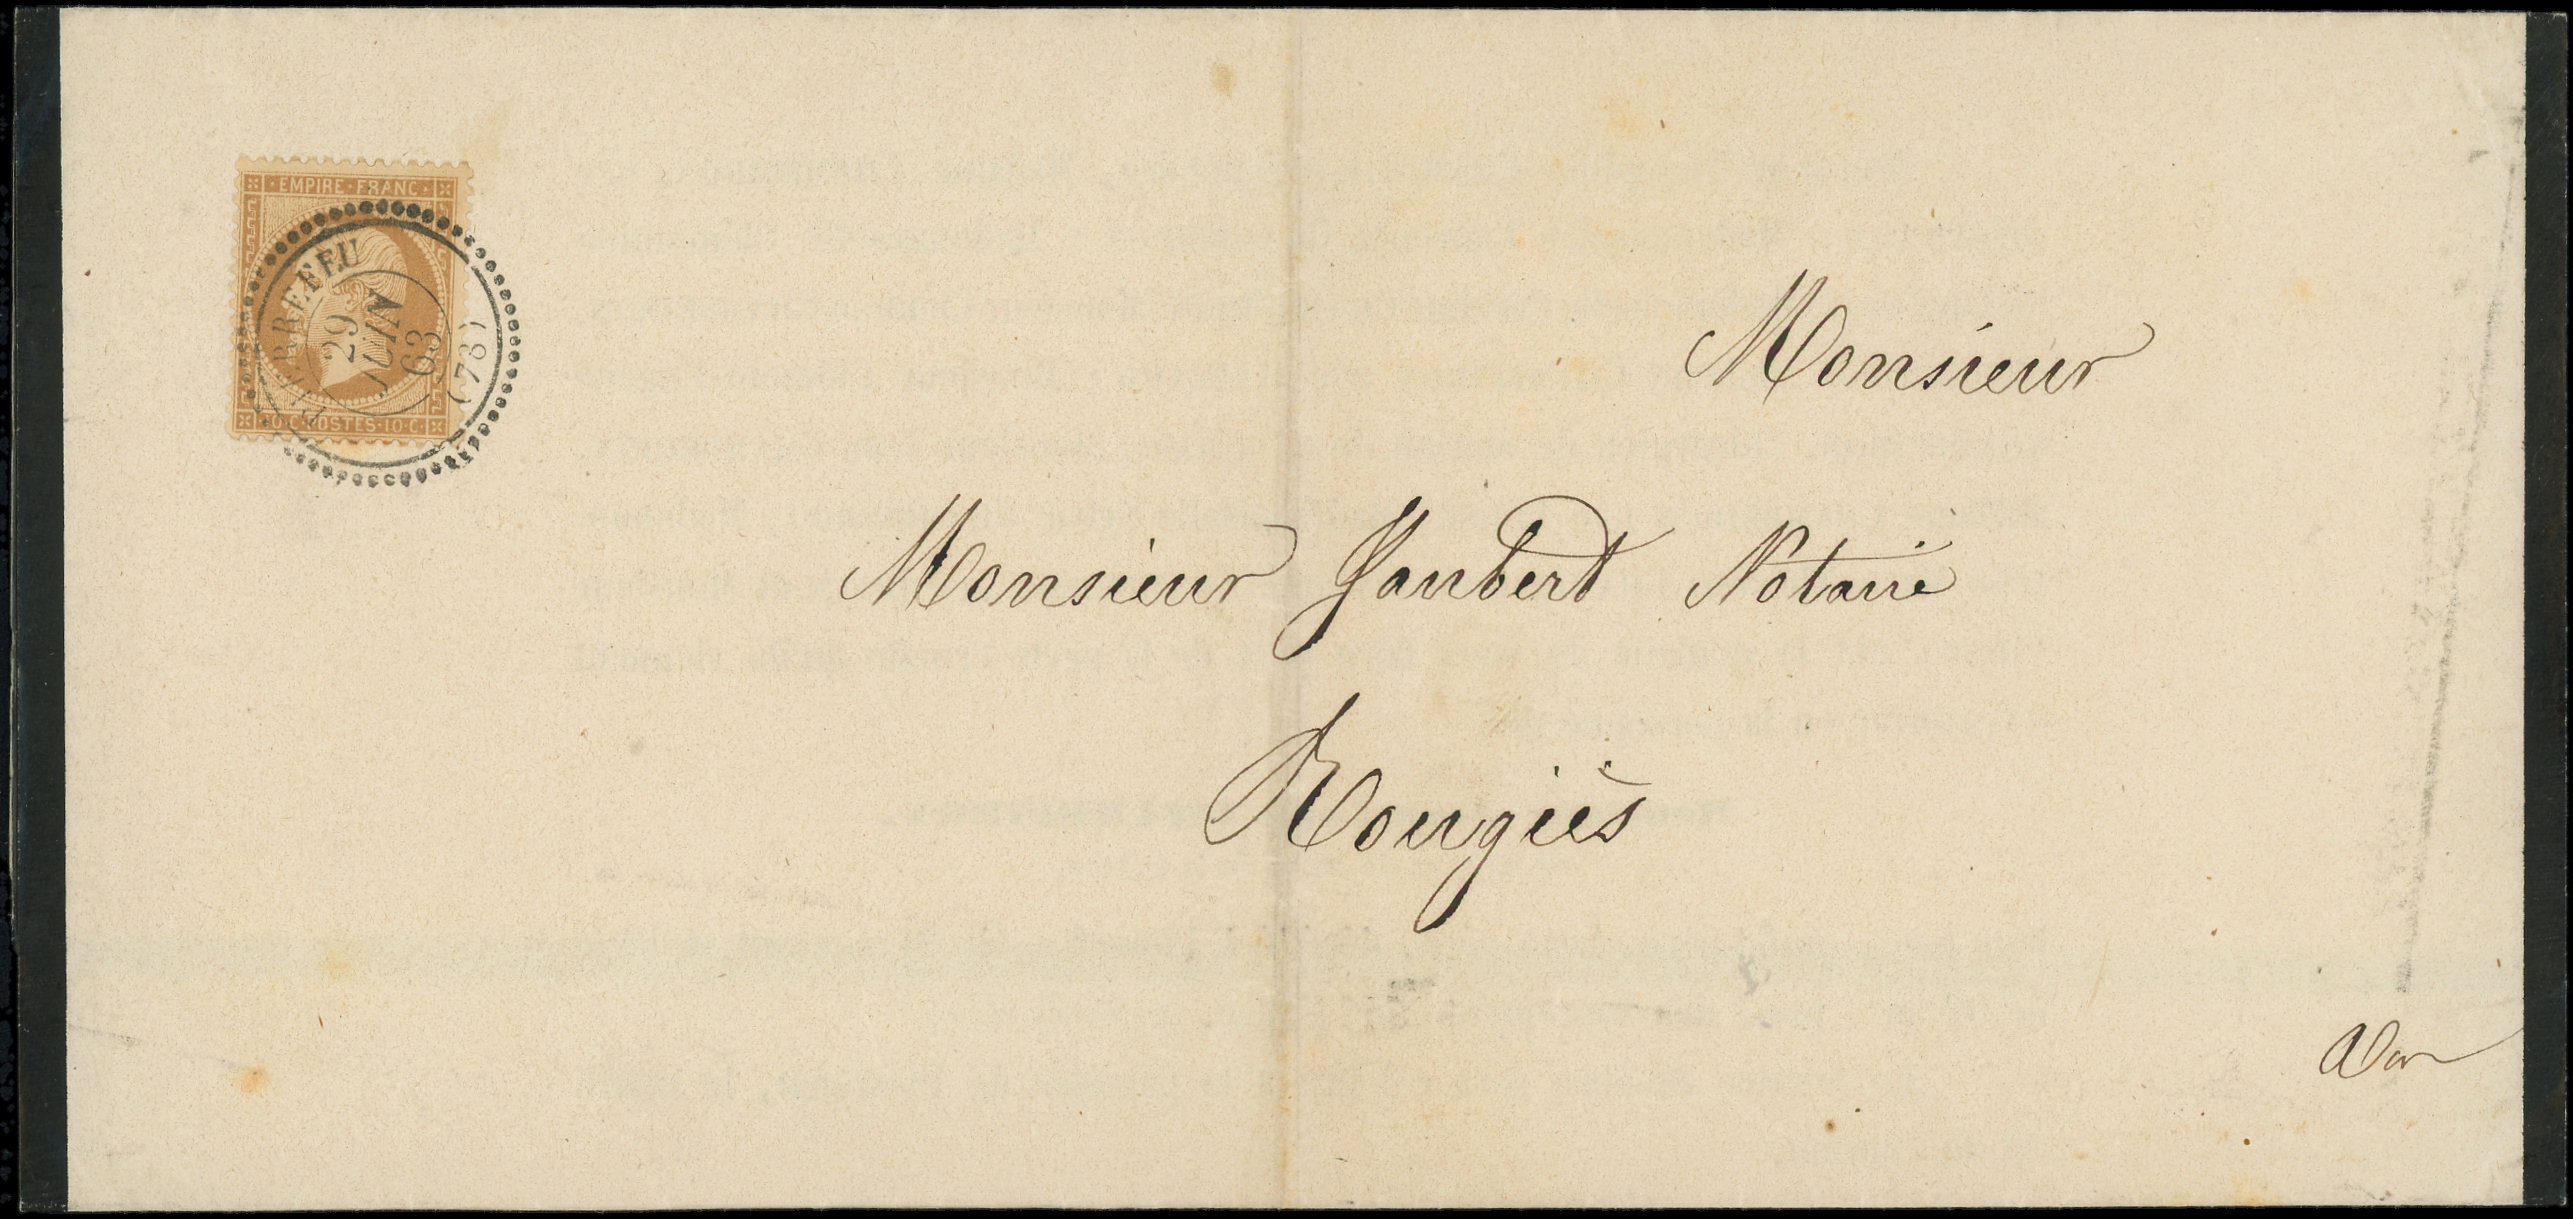 EMPIRE FRANC
PIERREFEU
29
JUIN
63
(78)
10 C POSTES 10 C
Monsieur
Monsieur Jaubert Notaire
Rougiès
Var